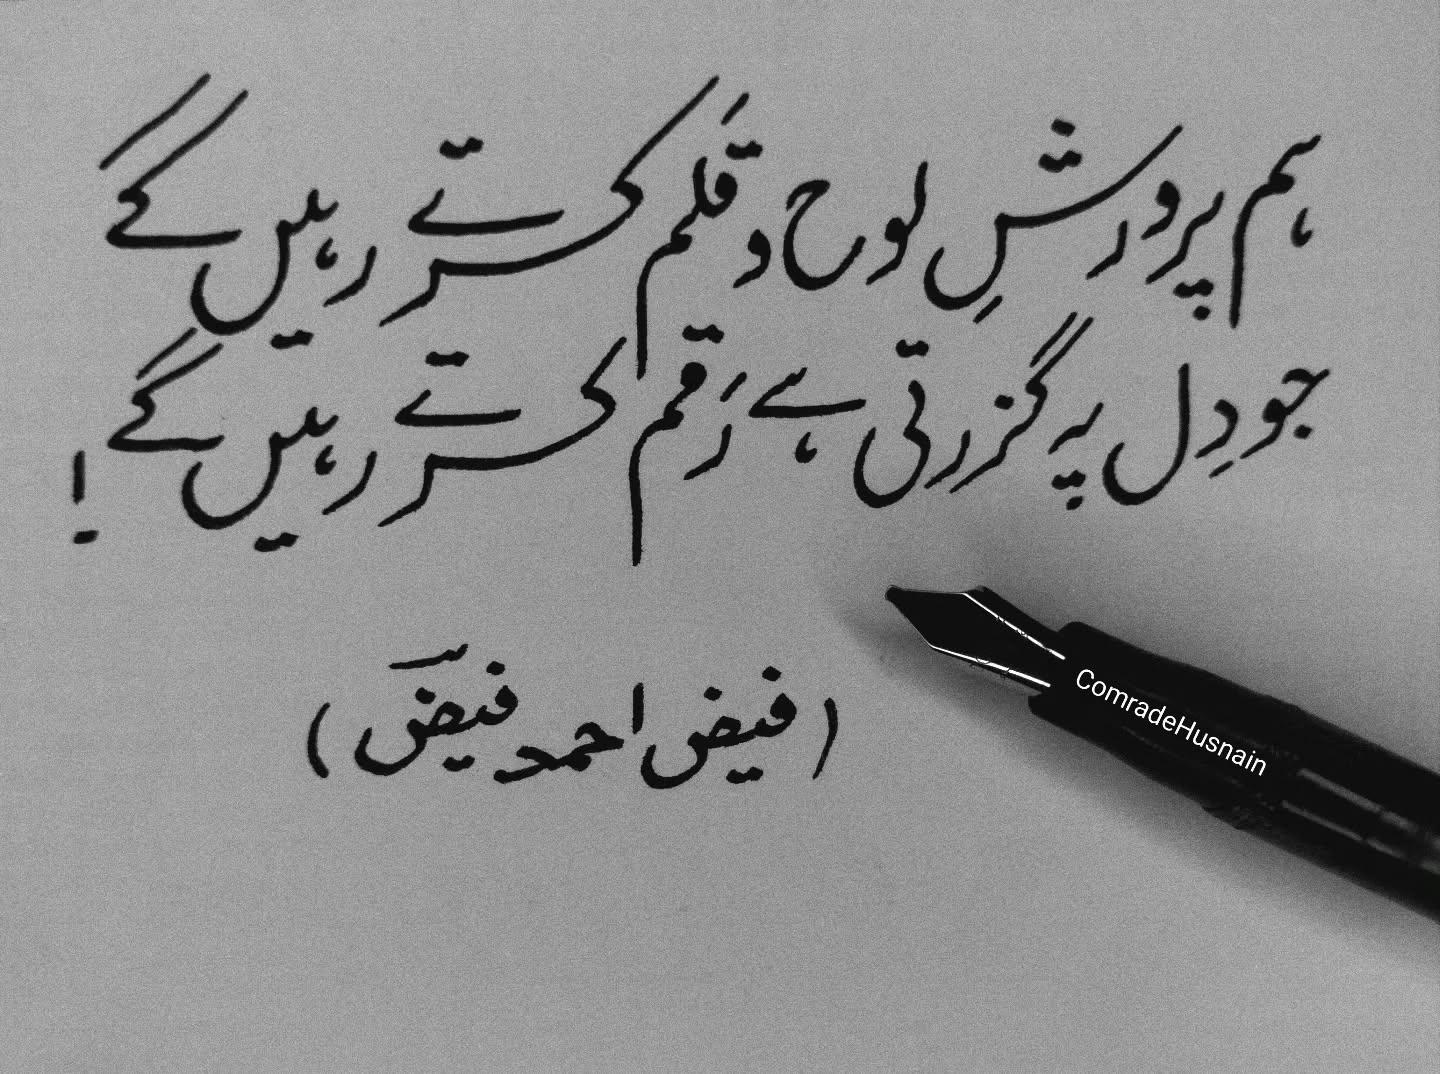 ہم پرورشِ لوح و قَلم کرتے رہیں گے
جو دِل پہ گزرتی ہے رَقم کرتے رہیں گے!
(فیض احمد فیضؔ)
ComradeHusnain